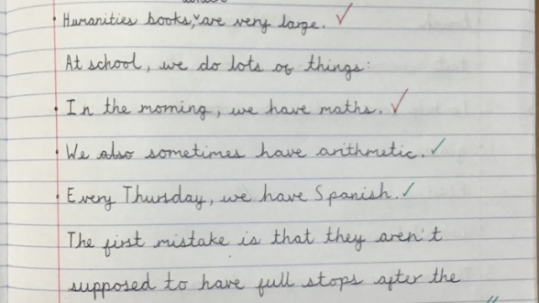 • Humanities books, are very large.
At school, we do lots of things:
• In the morning, we have maths.
• We also sometimes have arithmetic.
• Every Thursday, we have Spanish.
The first mistake is that they aren't
supposed to have full stops after the